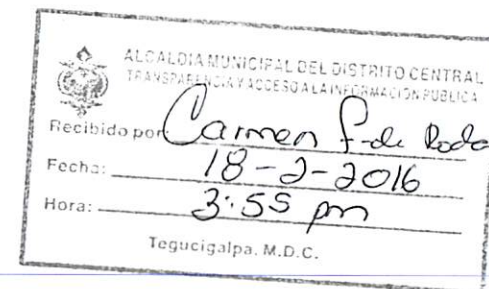 ALCALDIA MUNICIPAL DEL DISTRITO CENTRAL
TRANSPARENCIA Y ACCESO A LA INFORMACION PUBLICA
Recibido por: Carmen
Fecha: 18-2-2016
Hora: 3:55 pm
Tegucigalpa, M.D.C.